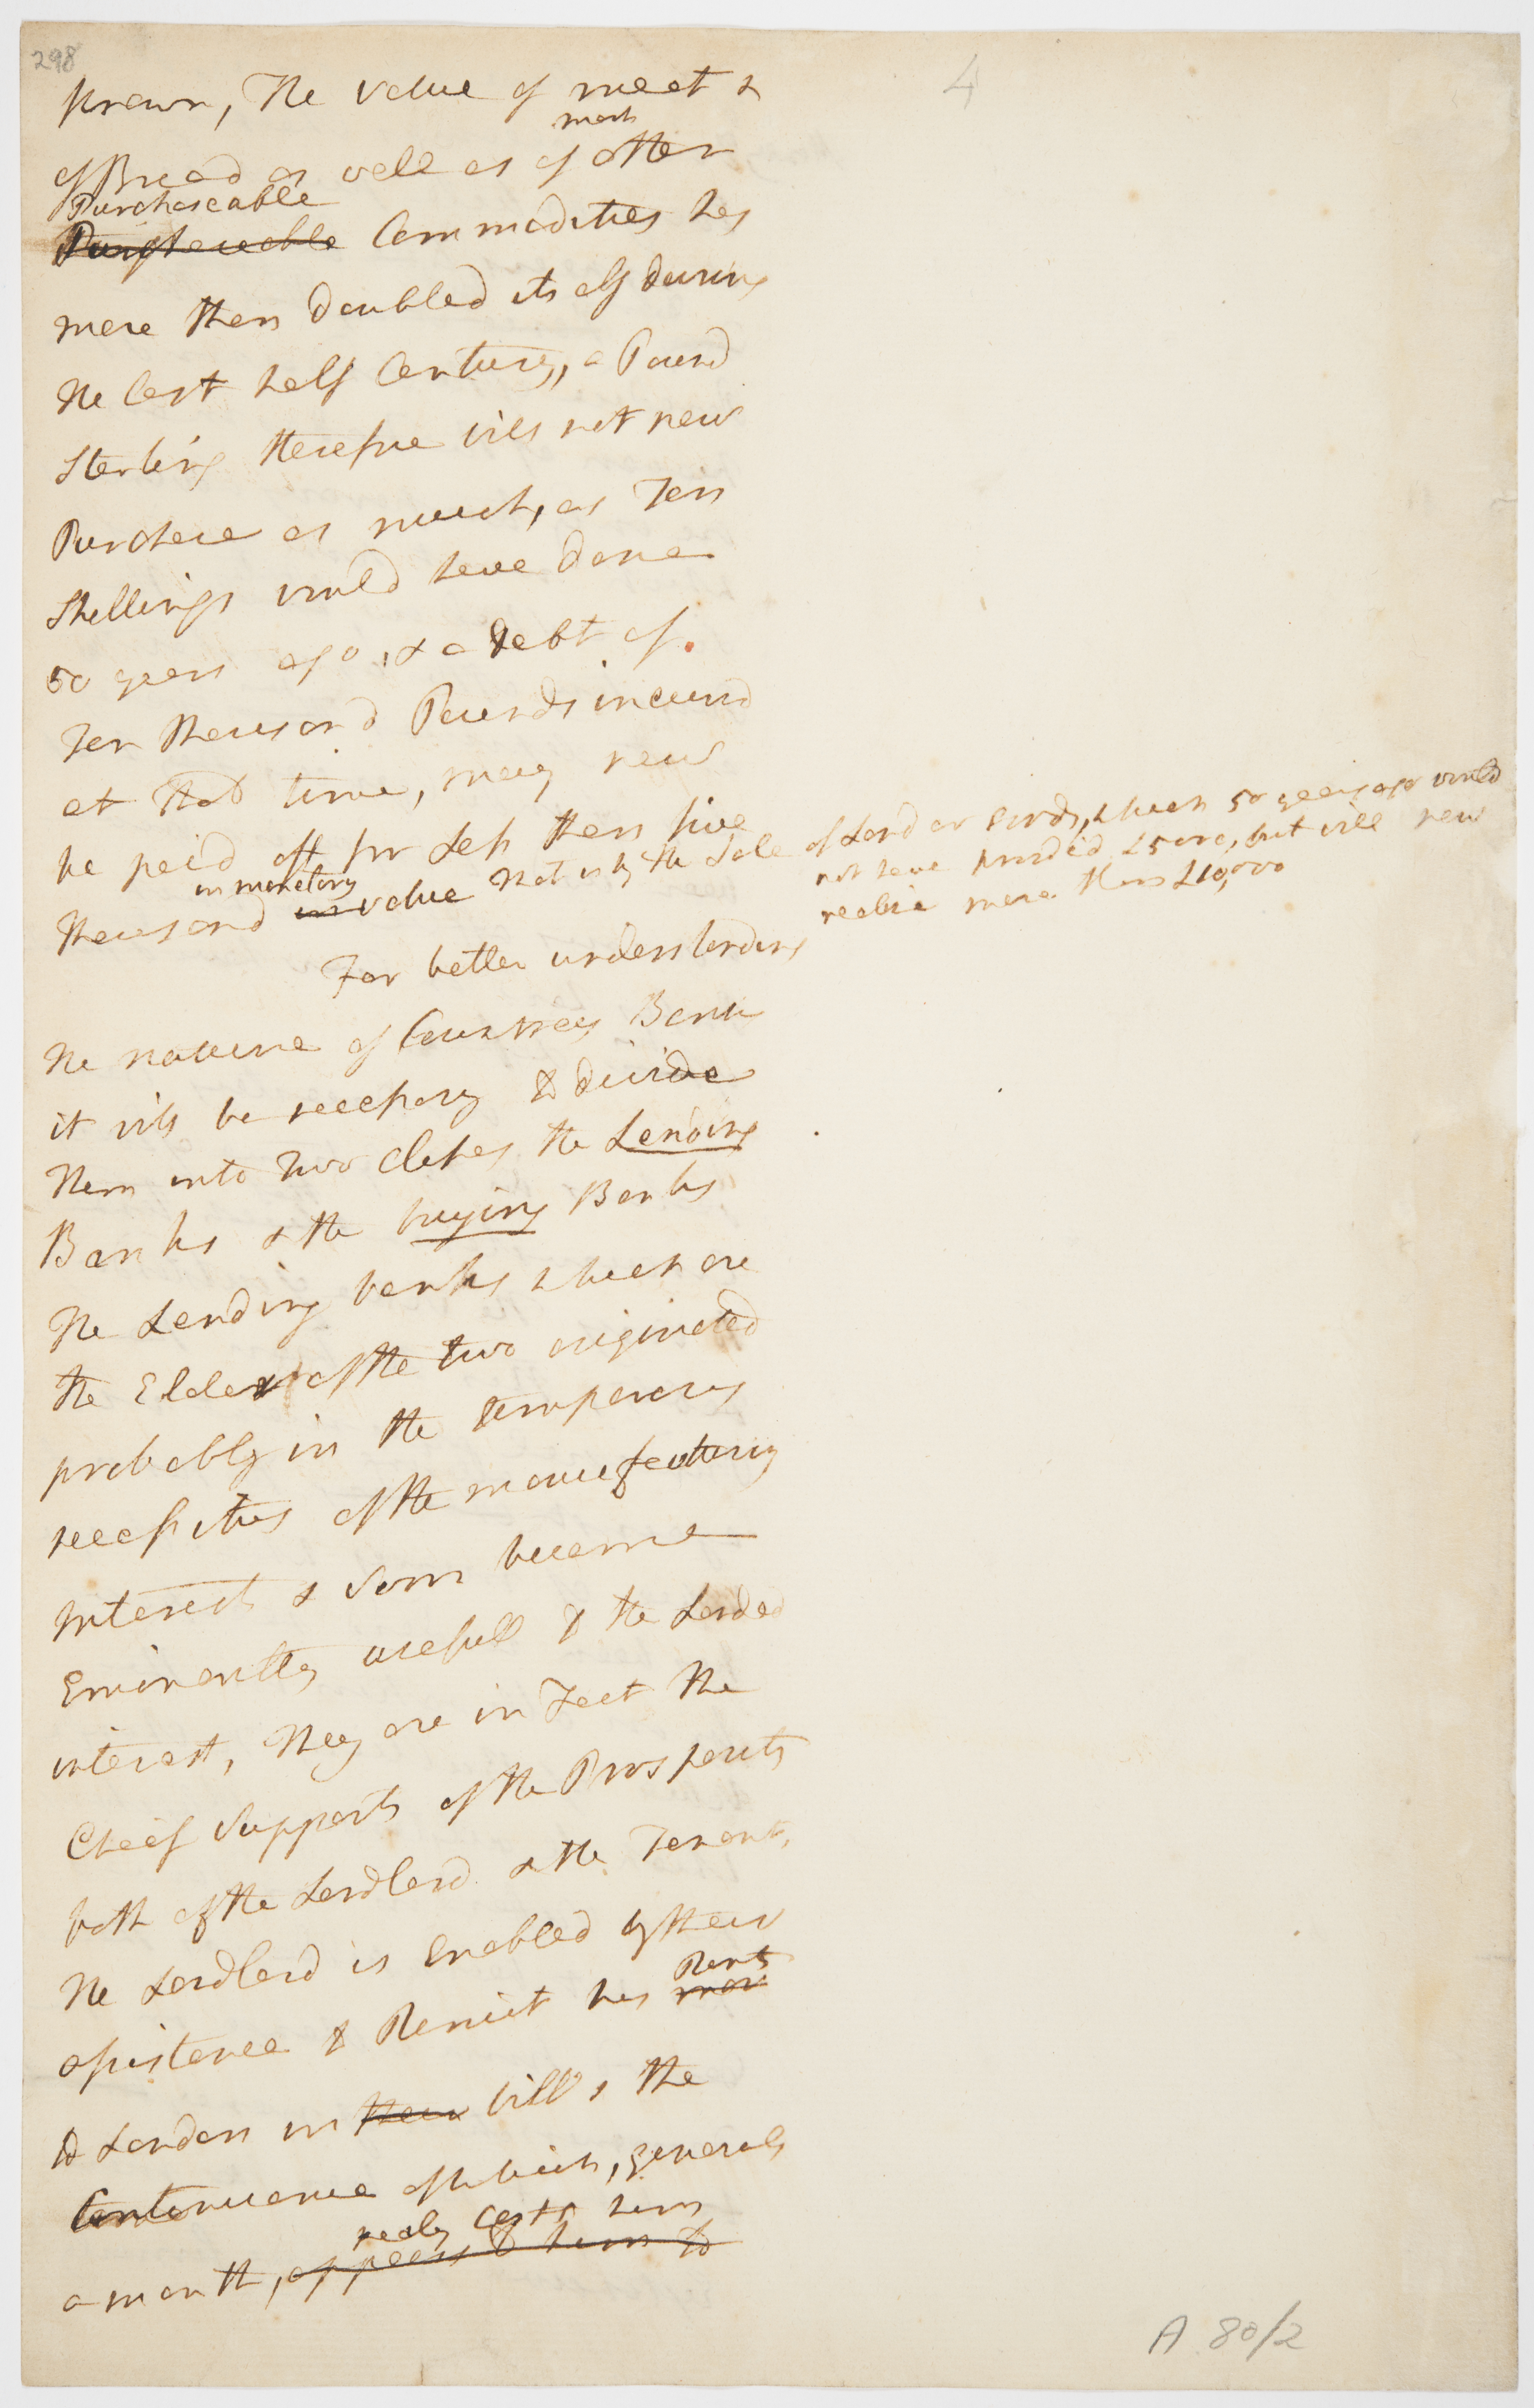 298
4
known, The value of meat &
most
of Bread as well as of other
Purchaseable
Purchaseable Commodities has
more then doubled its elf during
the last half Century, a Pound
Sterling therefore will not now
Purchase as much, as Ten
Shillings would have done
50 years ago, & a debt of
Ten thousand Pounds incurrd
at that time, may now
be paid off for Less then five
in monetary
thousand in value that is by the Sale of Land or funds, which 50 years ago would
not have provided £5000, but will now
realise more then £10,000
For better understanding
the nature of Country Bank
it will be necessary to divide
them into two classes the Lending
Banks & the buying Banks
The Lending banks which are
the Elder of the two originated
probably in the temporary
necessities of the manufacturing
interests & soon became
Eminently usefull to the Landed
interest, they are in Fact the
Cheif Supports of the Prosperity
both of the Landlord & the Tenant,
the Landlord is Enabled by their
Rents
assistance to Remit his
to London in their bills, the
Continuance of which, generaly
realy costs him
a month, appears to him to
A 80/2